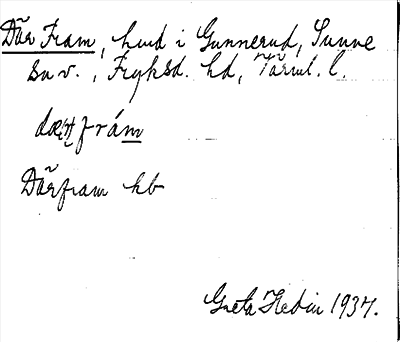 Där Fram, hmd i Gunnerud, Sunne
sn v., Fryksd. hd, Värml. l.
dæ̨frám
Därfram hb
Greta Hedin 1937.